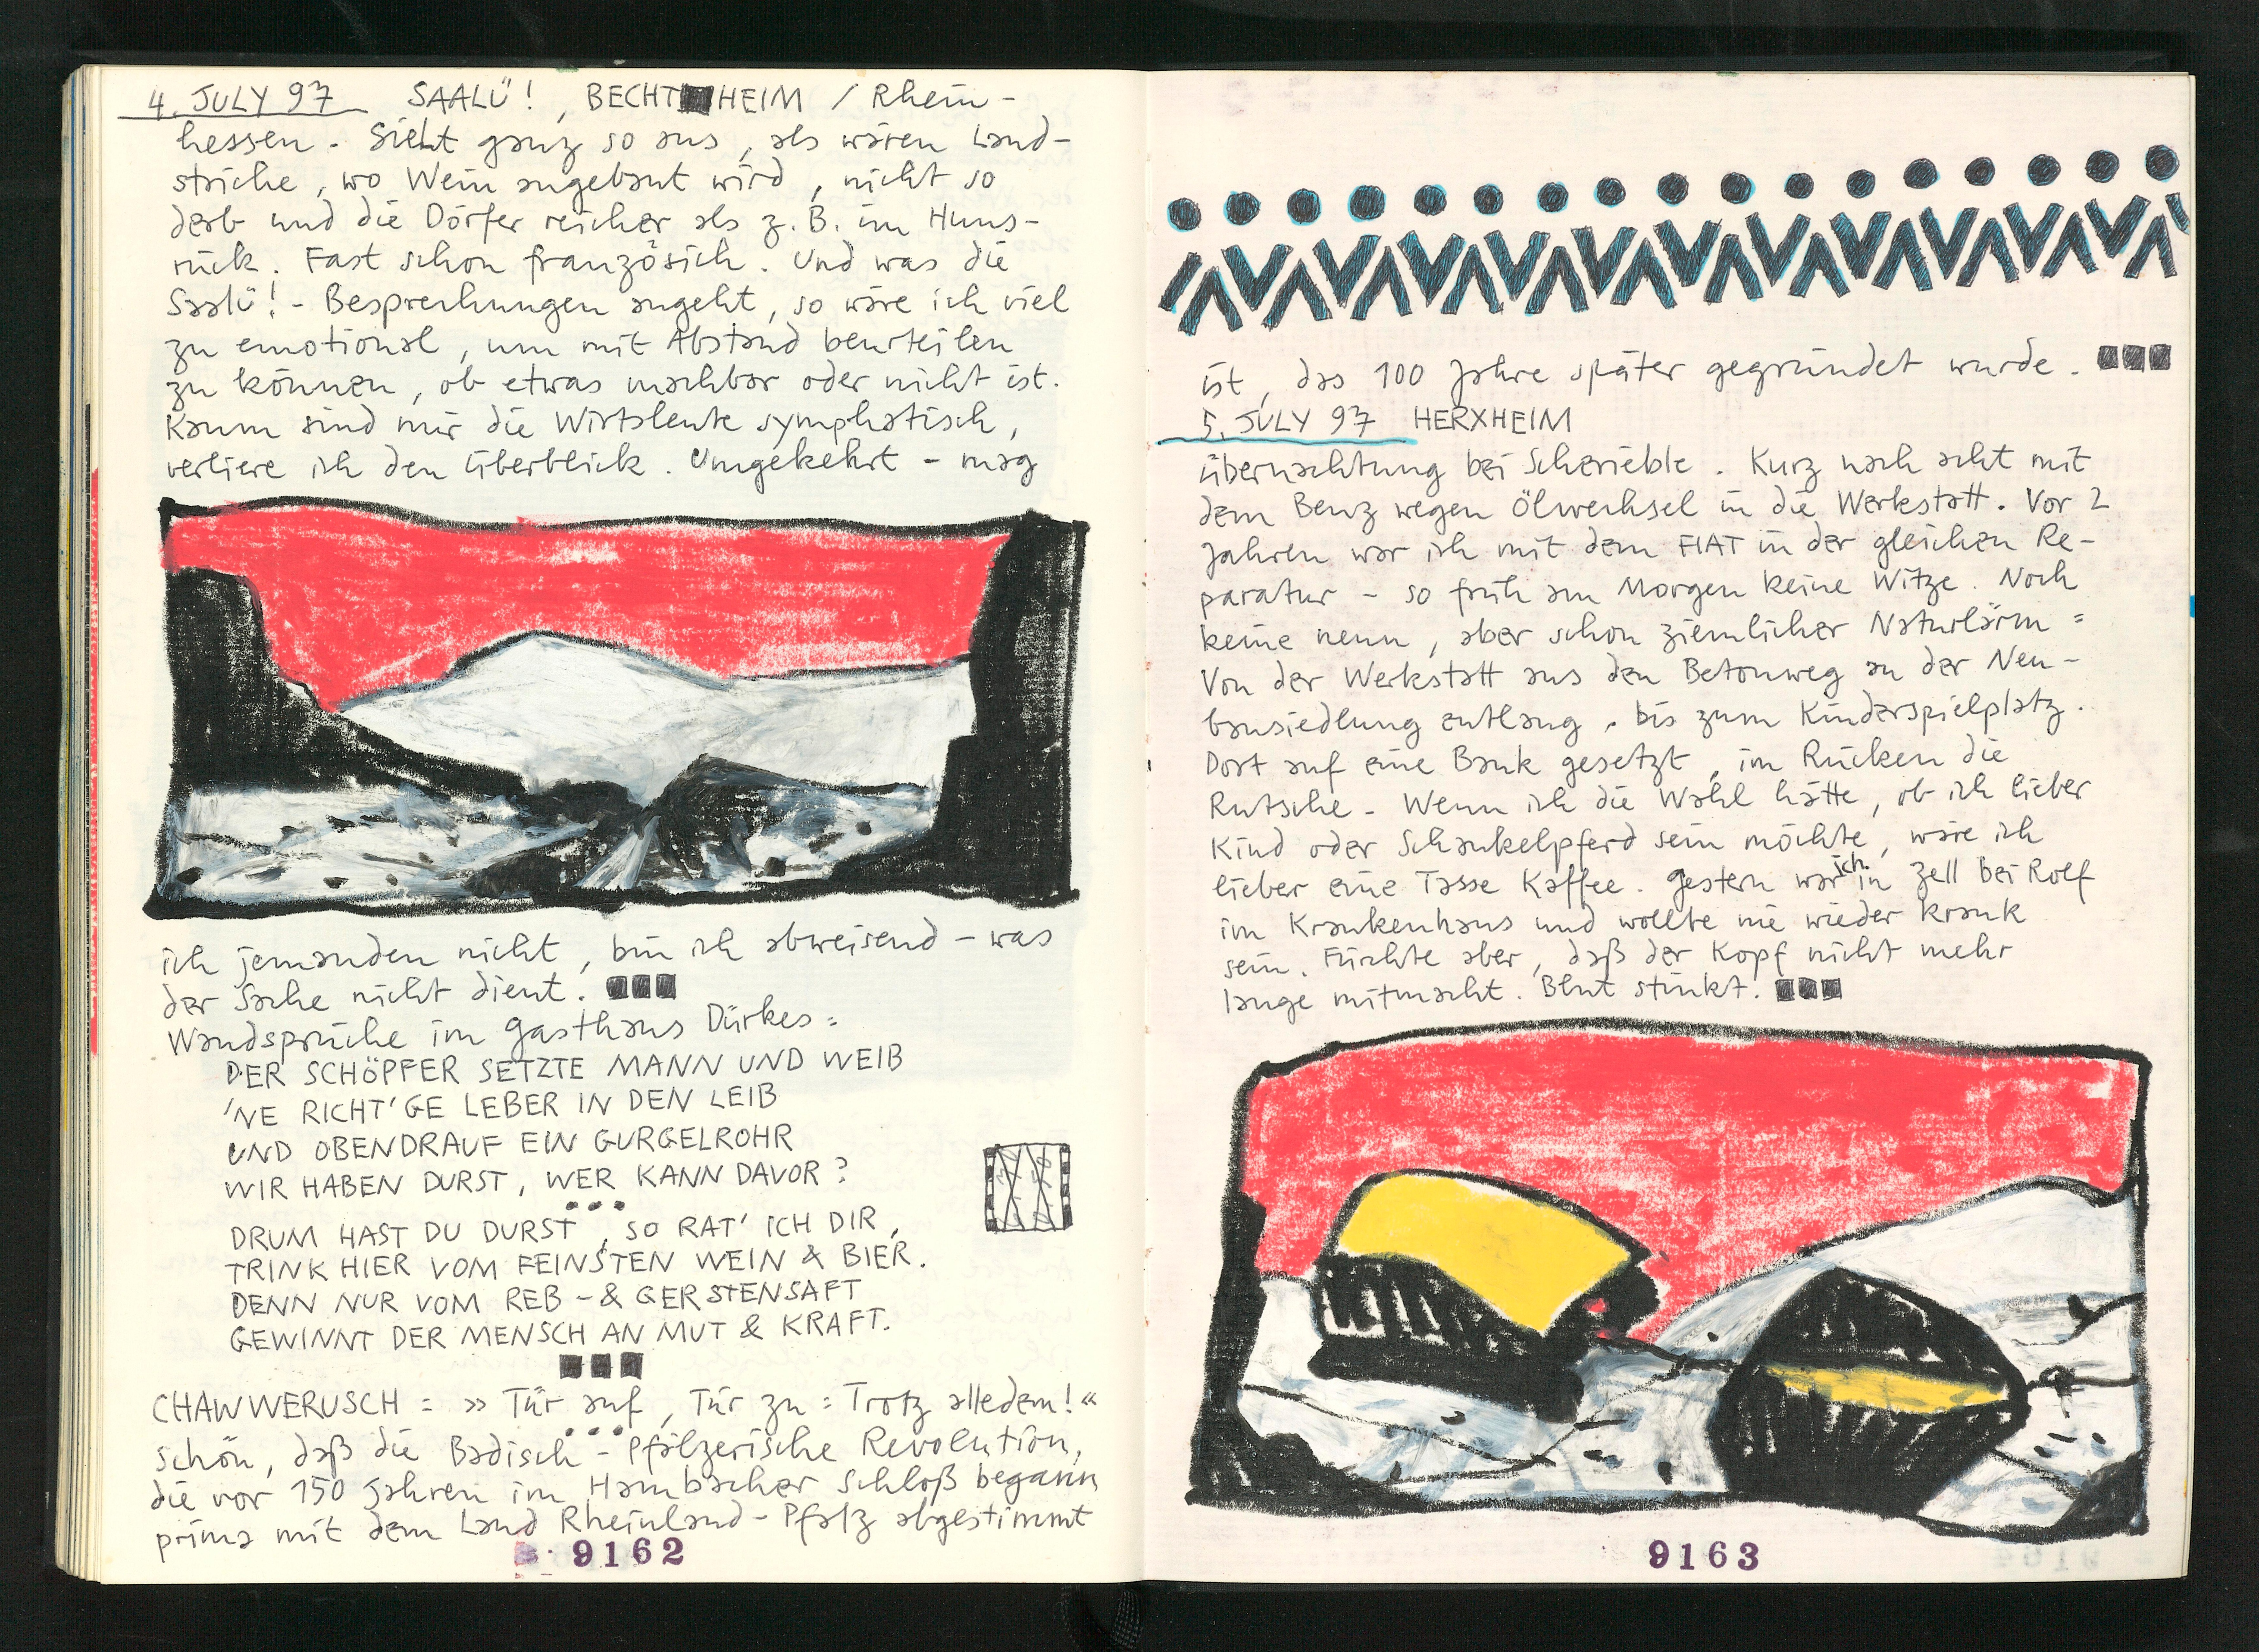 4. JULY 97 SAALÜ!, BECHTHEIM / Rhein-
hessen. Sieht ganz so aus, als wären Land-
striche, wo Wein angebaut wird, nicht so
derb und die Dörfer reicher als z.B. im Huns-
rück. Fast schon französich. Und was die
Saalü!-Besprechungen angeht, so wäre ich viel
zu emotional, um mit Abstand beurteilen
zu können, ob etwas machbar oder nicht ist.
Kaum sind mir die Wirtsleute symphatisch,
verliere ich den Überblick. Umgekehrt - mag
ich jemanden nicht, bin ich abweisend - was
der Sache nicht dient.
Wandsprüche im Gasthaus Dürkes:
DER SCHÖPFER SETZTE MANN UND WEIB
'NE RICHT'GE LEBER IN DEN LEIB
UND OBENDRAUF EIN GURGELROHR
WIR HABEN DURST, WER KANN DAVOR?
DRUM HAST DU DURST, SO RAT' ICH DIR,
TRINK HIER VOM FEINSTEN WEIN & BIER.
DENN NUR VOM REB- & GERSTENSAFT
GEWINNT DER MENSCH AN MUT & KRAFT.
CHAWWERUSCH: »Tür auf, Tür zu: Trotz alledem!«
schön, daß die Badisch-Pfälzerische Revolution,
die vor 150 Jahren im Hambacher Schloß begann
prima mit dem Land Rheinland-Pfalz abgestimmt
9162
ist, das 100 Jahre später gegründet wurde.
5. JULY 97 HERXHEIM
Übernachtung bei Scherieble. Kurz nach acht mit
dem Benz wegen Ölwechsel in die Werkstatt. Vor 2
Jahren war ich mit dem FIAT in der gleichen Re-
paratur - so früh am Morgen keine Witze. Noch
keine neun, aber schon ziemlicher Naturlärm:
Von der Werkstatt aus den Betonweg an der Neu-
bausiedlung entlang, bis zum Kinderspielplatz.
Dort auf eine Bank gesetzt, im Rücken die
Rutsche. Wenn ich die Wahl hätte, ob ich lieber
Kind oder Schaukelpferd sein möchte, wäre ich
lieber eine Tasse Kaffee. Gestern war ich in Zell bei Rolf
im Krankenhaus und wollte nie wieder krank
sein. Fürchte aber, daß der Kopf nicht mehr
lange mitmacht. Blut stinkt.
9163